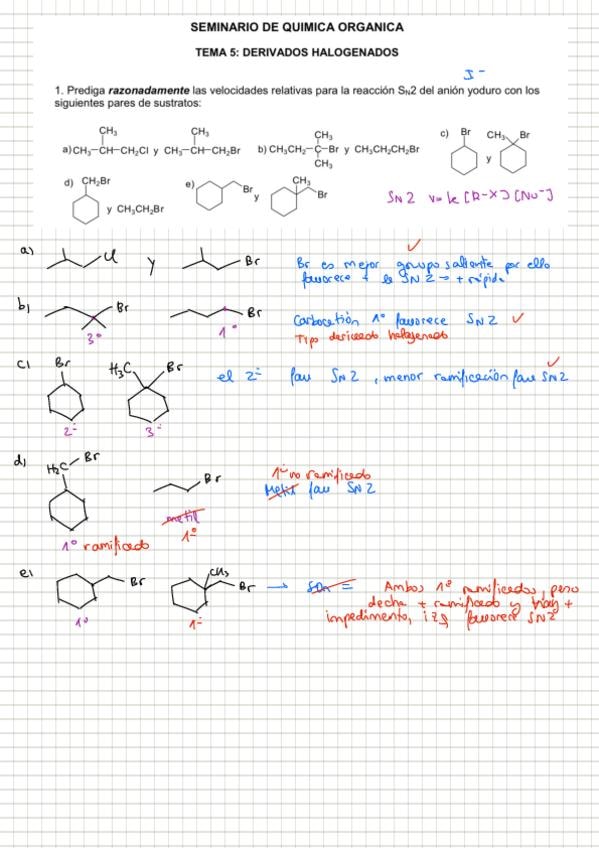 SEMINARIO DE QUIMICA ORGANICA
TEMA 5: DERIVADOS HALOGENADOS
I⁻
1. Prediga razonadamente las velocidades relativas para la reacción SN2 del anión yoduro con los
siguientes pares de sustratos:
CH3 CH3 CH3
a) CH3–CH–CH2Cl y CH3–CH–CH2Br b) CH3CH2–C–Br y CH3CH2CH2Br c) Br y CH3 Br
CH3
d) CH2Br y CH3CH2Br e) Br y CH3 Br
SN2 v = k [R-X] [Nu⁻]
a) Cl y Br
Br es mejor grupo saliente por ello
favorece + la SN2 → + rápida
b) Br Br
3º 1º
Carbocatión 1º favorece SN2
Tipo derivado halogenado
c) Br H3C Br
2º 3º
el 2º fav SN2, menor ramificación fav SN2
d) H2C Br Br
1º no ramificado
Metil fav SN2
metil
1º ramificado 1º
e) Br CH3 Br →
1º 1º
= Ambos 1º ramificados, pero
decha + ramificado y hay +
impedimento, izq favorece SN2